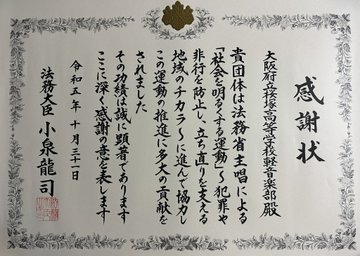 感謝状
大阪府立桜塚高等学校軽音楽部殿
貴団体は法務省主唱による
「社会を明るくする運動」〜犯罪や
非行を防止し、立ち直りを支える
地域のチカラ〜に進んで協力し
この運動の推進に多大の貢献を
されました
その功績は誠に顕著であります
ここに深く感謝の意を表します
令和五年十月三十一日
法務大臣 小泉龍司